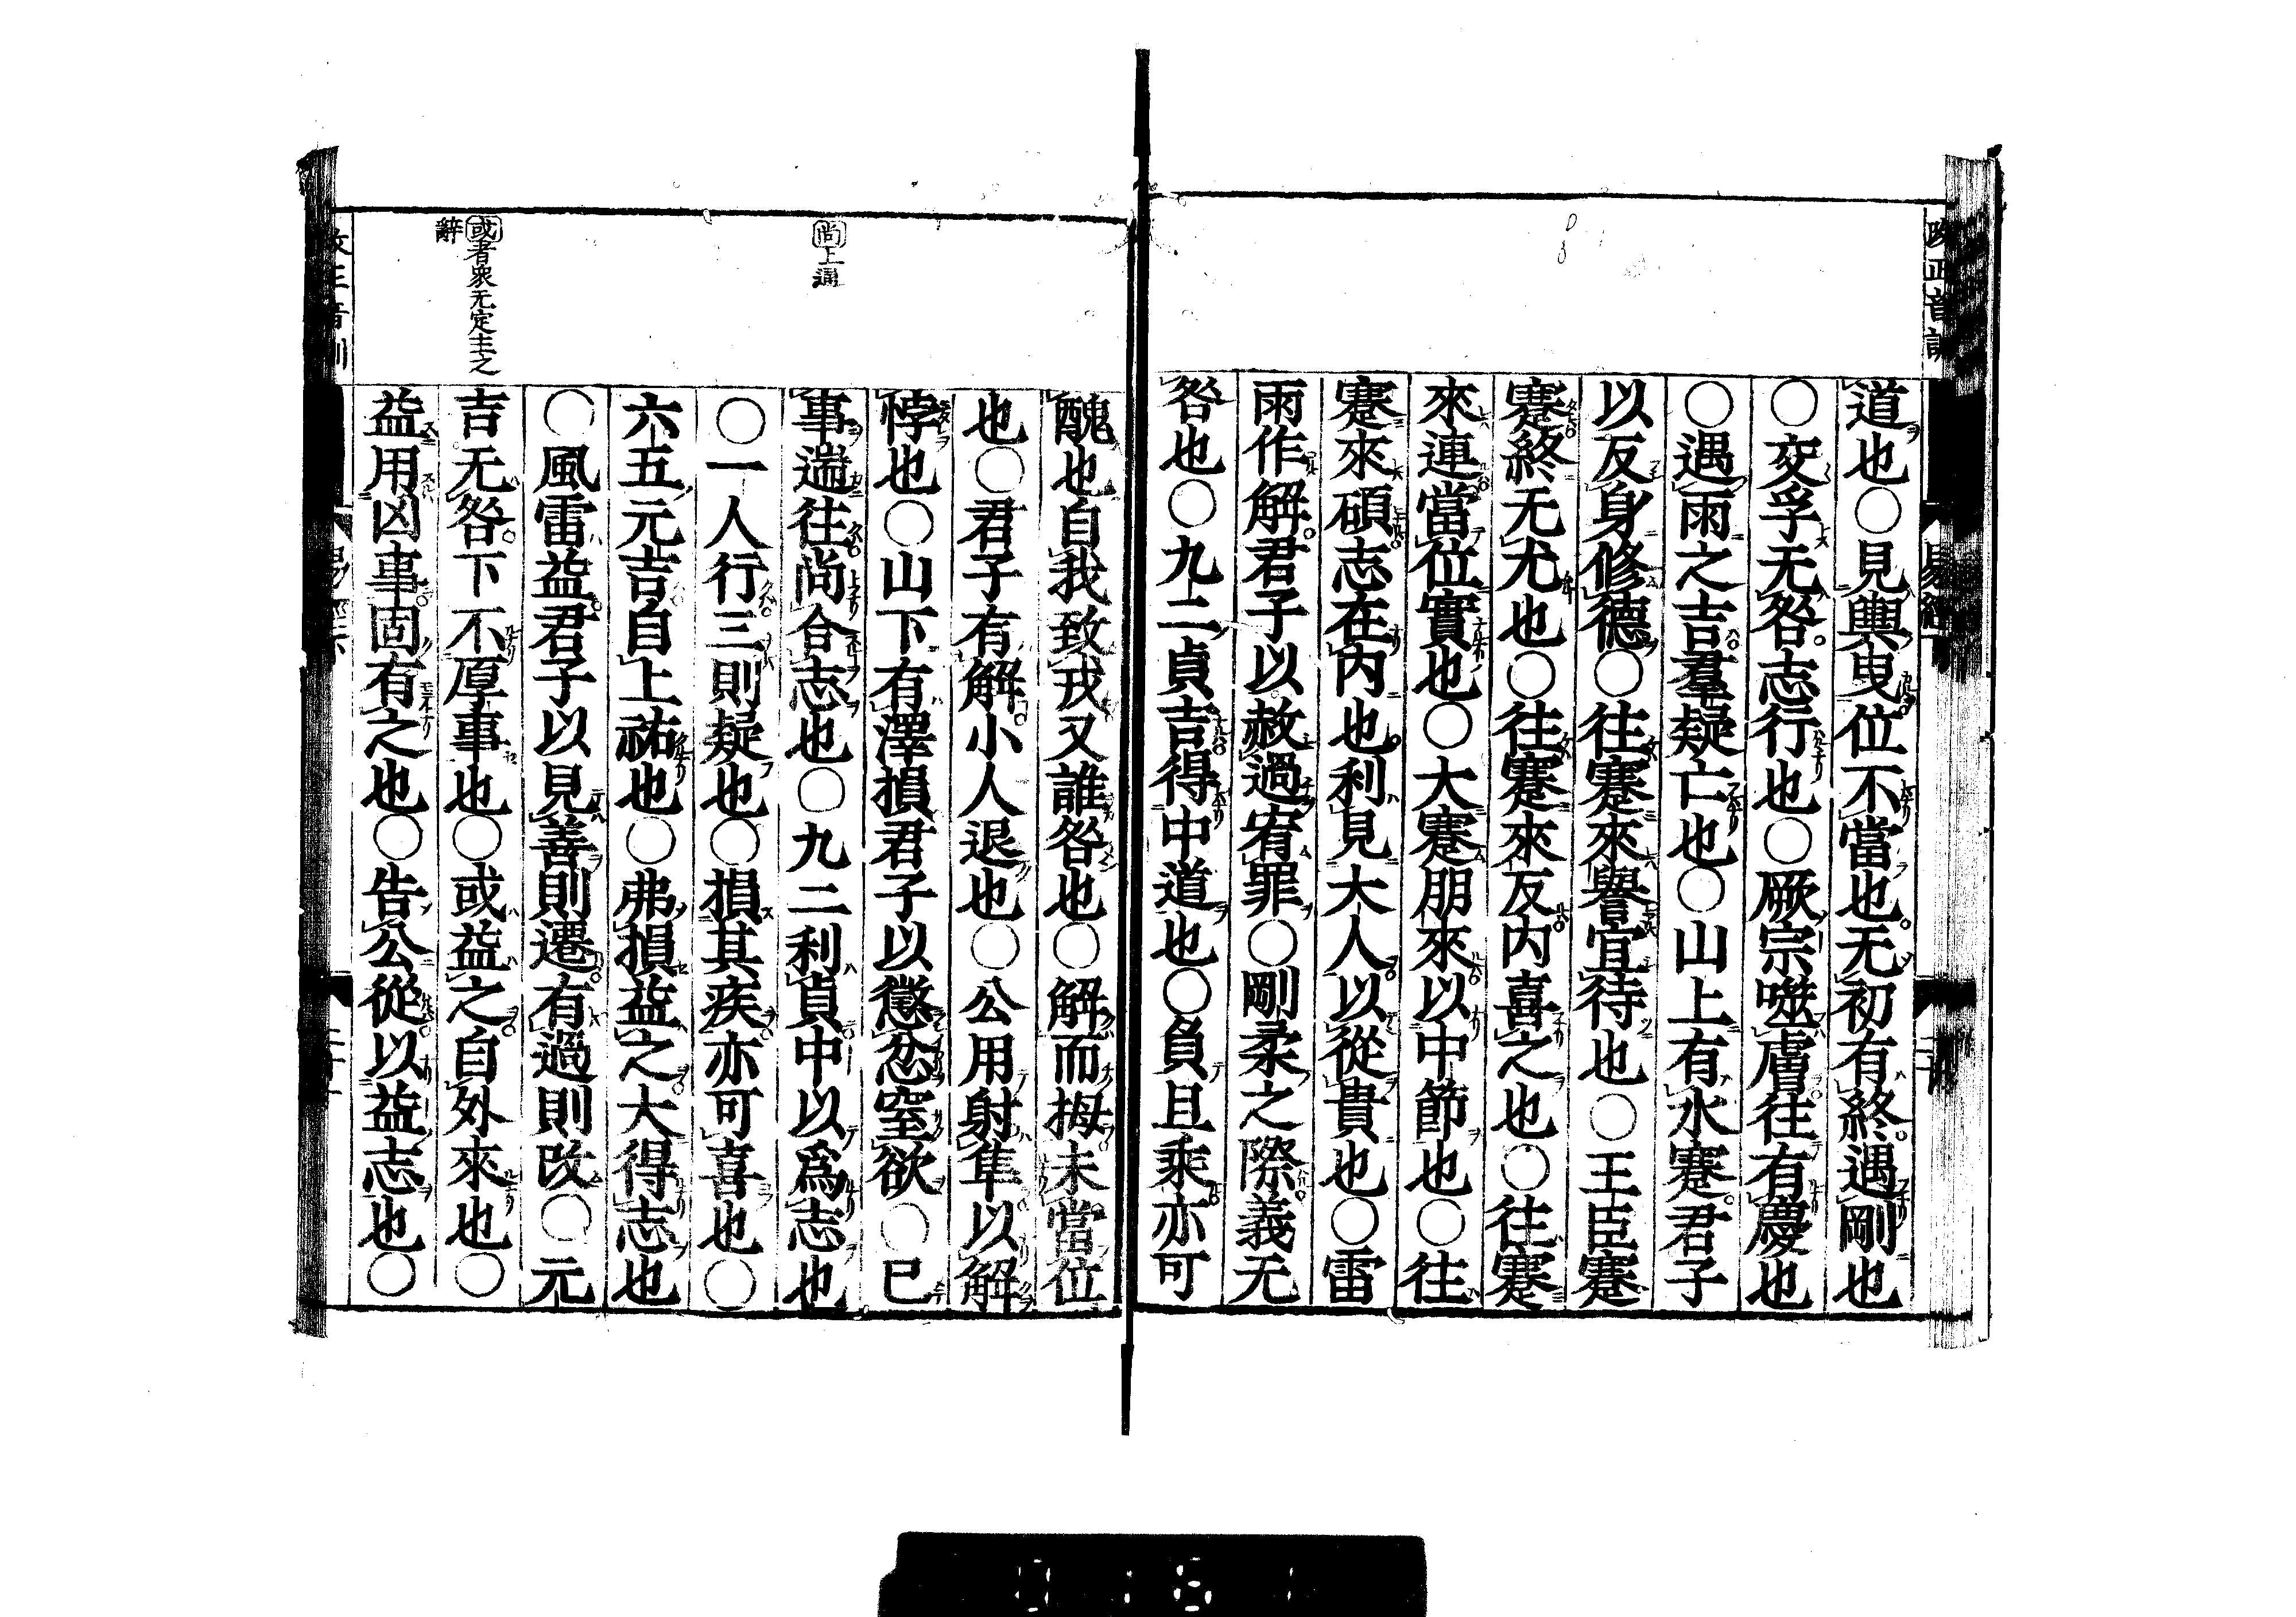 道也○見輿曳位不當也无初有終遇剛也
○交孚无咎志行也○厥宗噬膚往有慶也
○遇雨之吉羣疑亡也○山上有水蹇君子
以反身修德○往蹇來譽宜待也○王臣蹇
蹇終无尤也○往蹇來反內喜之也○往蹇
來連當位實也○大蹇朋來以中節也○往
蹇來碩志在內也利見大人以從貴也○雷
雨作解君子以赦過宥罪○剛柔之際義无
咎也○九二貞吉得中道也○負且乘亦可
尚上通
或者衆无定主之
辭
醜也自我致戎又誰咎也○解而拇未當位
也○君子有解小人退也○公用射隼以解
悖也○山下有澤損君子以懲忿窒欲○已
事遄往尚合志也○九二利貞中以爲志也
○一人行三則疑也○損其疾亦可喜也○
六五元吉自上祐也○弗損益之大得志也
○風雷益君子以見善則遷有過則改○元
吉无咎下不厚事也○或益之自外來也○
益用凶事固有之也○告公從以益志也○